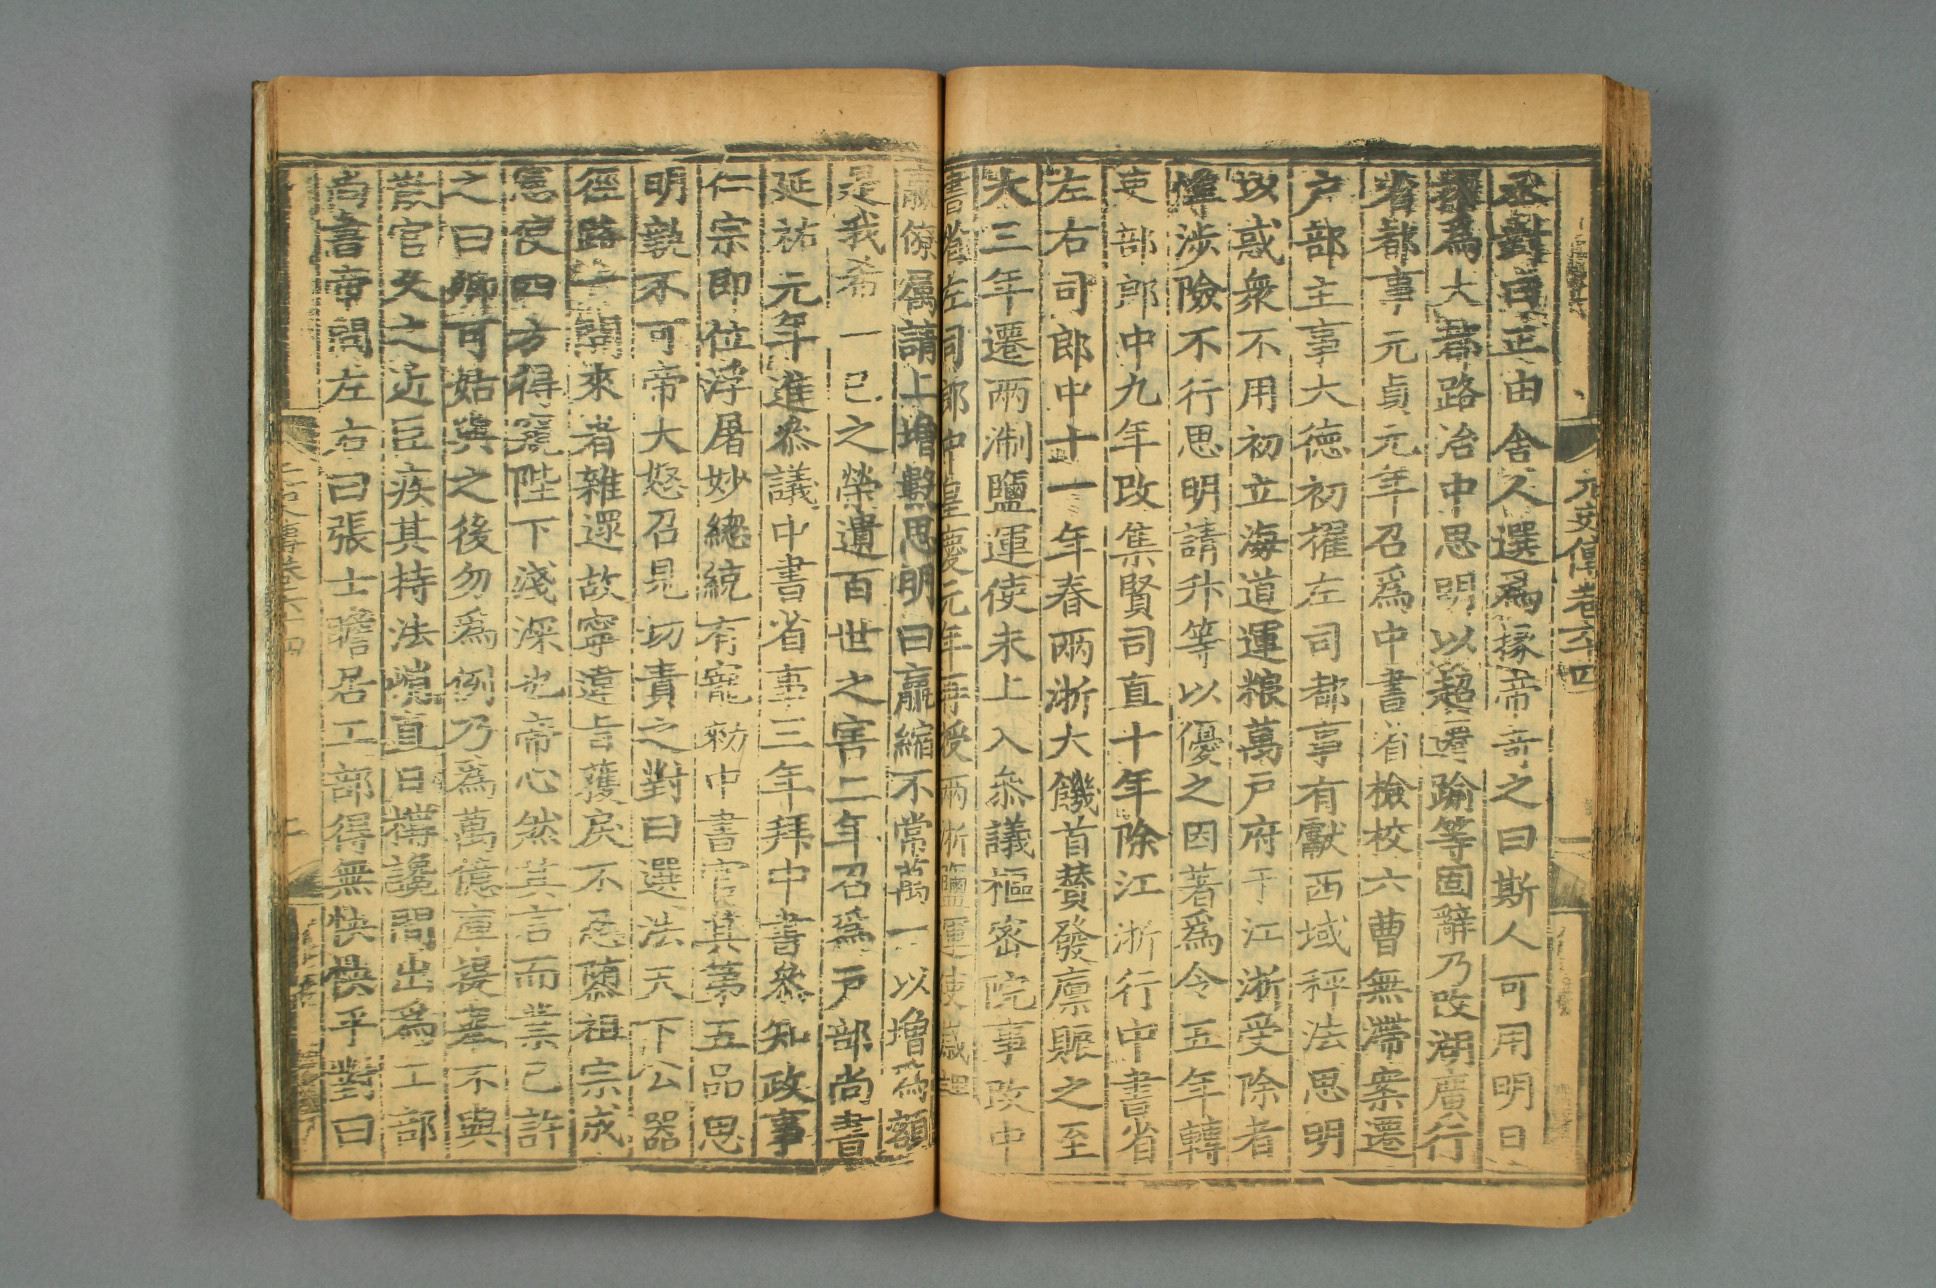 元史傳卷六十四
丞對曰正由舍人選爲掾帝奇之曰斯人可用明日
擢爲大都路治中思明以超遷踰等固辭乃改湖廣行
省都事元貞元年召爲中書省檢校六曹無滯案遷
户部主事大德初擢左司都事有獻西域秤法思明
以惑衆不用初立海道運粮萬户府于江浙受除者
憚涉險不行思明請升等以優之因著爲令五年轉
吏部郎中九年改集賢司直十年除江浙行中書省
左右司郎中十一年春兩浙大饑首贊發廪賑之至
大三年遷兩淛鹽運使未上入叅議樞密院事改中
書省左司郎中皇慶元年再授兩浙鹽運使歲課
羸僚属請上增數思明曰羸縮不常萬一以增爲額
是我希一己之榮遺百世之害二年召爲户部尚書
延祐元年進叅議中書省事三年拜中書叅知政事
仁宗即位浮屠妙總統有寵勑中書官其弟五品思
明執不可帝大怒召見切責之對曰選法天下公器
徑路一開來者雜遝故寧違旨獲戾不忍隳祖宗成
憲使四方得窺陛下淺深也帝心然其言而業已許
之曰卿可姑與之後勿爲例乃爲萬億庫提舉不與
散官久之近臣疾其持法峭直日構讒間出爲工部
尚書帝問左右曰張士瞻居工部得無怏怏乎對曰
元史傳卷六十四
二